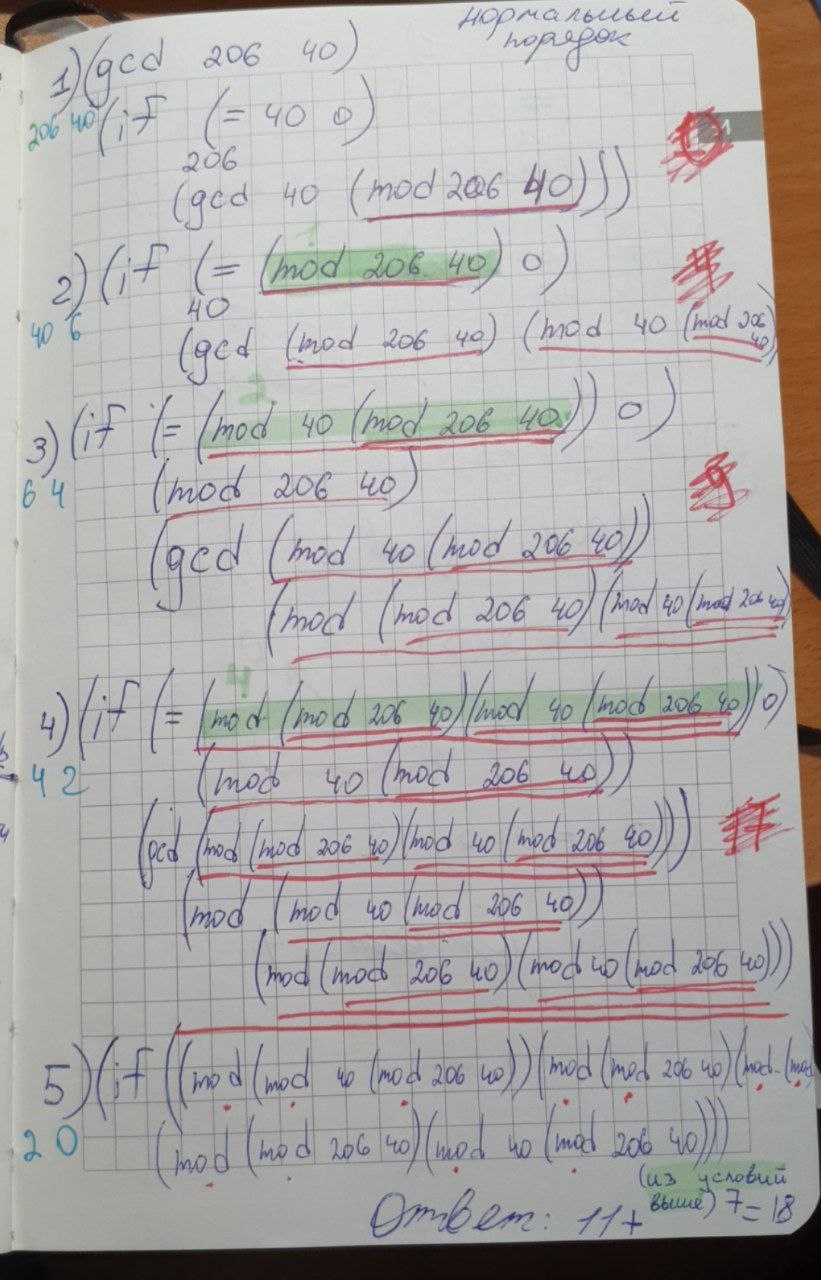 нормальный
порядок
1) (gcd 206 40)
206 40 (if (= 40 0)
206
(gcd 40 (mod 206 40)))
1
2) (if (= (mod 206 40) 0)
40
40 6
(gcd (mod 206 40) (mod 40 (mod 206
40)
2
3) (if (= (mod 40 (mod 206 40)) 0)
6 4 (mod 206 40)
9
(gcd (mod 40 (mod 206 40))
(mod (mod 206 40) (mod 40 (mod 206 40)
4
4) (if (= (mod (mod 206 40) (mod 40 (mod 206 40)) 0)
4 2 (mod 40 (mod 206 40))
(gcd (mod (mod 206 40) (mod 40 (mod 206 40))) 17
(mod (mod 40 (mod 206 40))
(mod (mod 206 40) (mod 40 (mod 206 40)))
5) (if ((mod (mod 40 (mod 206 40)) (mod (mod 206 40) (mod (mod
2 0 (mod (mod 206 40) (mod 40 (mod 206 40)))
(из условий
выше)
Ответ: 11 + 7 = 18